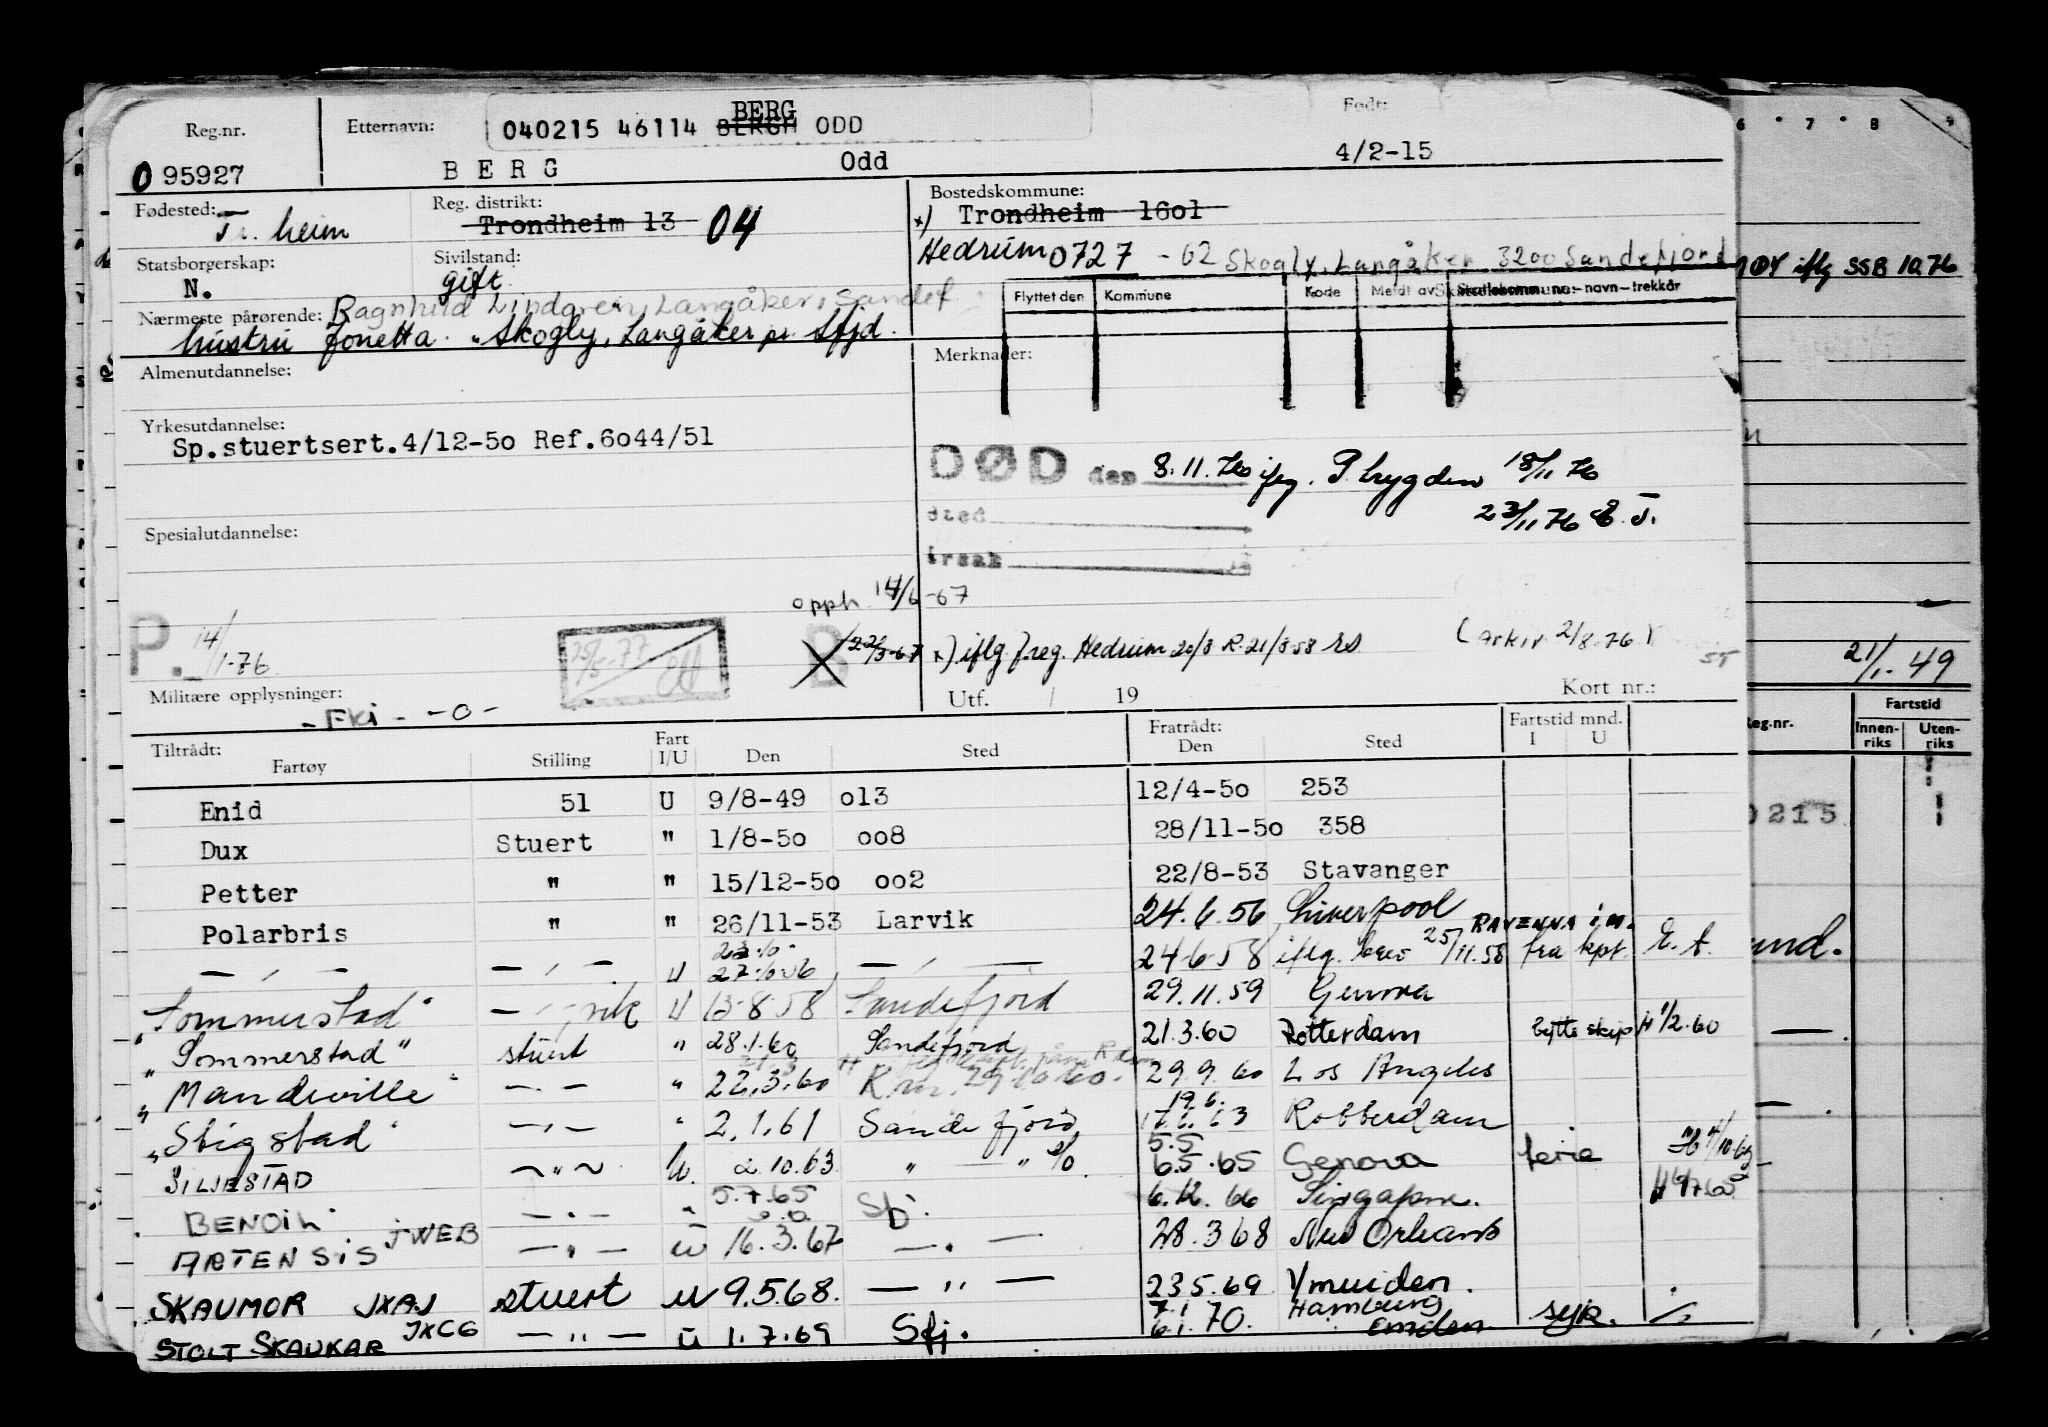 Reg.nr. Etternavn: 040215 46114 BERGH BERG ODD Født:
0 95927 BERG Odd 4/2-15
Fødested: Tr. heim Reg. distrikt: Trondheim 13 04 Bostedskommune: x) Trondheim 16o1
Hedrum 0727 - 62 Skogly, Langåker 3200 Sandefjord
Statsborgerskap: N. Sivilstand: gift
Flyttet den Kommune Kode Meldt av Skattekommune:-navn-trekkår
Nærmeste pårørende: Ragnhild Lindgren, Langåker, Sandef
hustru Jonetta "Skogly, Langåker pr Sfjd.
Almenutdannelse: Merknader:
Yrkesutdannelse:
Sp.stuertsert.4/12-5o Ref.6o44/51
DØD den 8.11.76 iflg. 18/11 76
23/11 76 E.T.
sted
årsak
Spesialutdannelse:
opph. 14/6 -67
P. 14/1-76 B x) iflg. freg. Hedrum 20/8 R. 21/8-58 (arkiv 2/8-76)
Militære opplysninger: - Fki - -o- Utf. 19 Kort nr.:
Tiltrådt: Fartøy Stilling Fart I/U Den Sted Fratrådt: Den Sted Fartstid mnd. I U
Enid 51 U 9/8-49 o13 12/4-5o 253
Dux Stuert " 1/8-5o oo8 28/11-5o 358
Petter " " 15/12-5o oo2 22/8-53 Stavanger
Polarbris " " 26/11-53 Larvik 24.6.56 Liverpool RAVENNA i M.
— , — — , — U — , — 24-6-58 iflg. brev 25/11.58 fra kpt.
"Sommerstad" U 13-8-58 Sandefjord 29.11.59 Genova
"Sommerstad" stuert " 28.1.60 Sandefjord 21.3.60 Rotterdam bytte skip H 1/2-60
"Mandeville" — . — " 22.3.60 29.9.60 Los Angeles
"Stigstad" — , — " 2.1.61 Sandefjord 19.6. 17.6.63 Rotterdam
SILJESTAD ~ " ~ U. 2.10.63 " — " 5.5 6.5.65 Genova ferie
BENOIL — . — " 5.7.65 Sfj. 6.12.66 Singapore.
ARTENSIS JWEB — " — U 16.3.67 — " — 28.3 68 New Orleans
SKAUMOR JXAJ stuert U 9.5.68. — " — 23.5.69 Ymuiden.
STOLT SKAUKAR JXCG — " — U 1.7.69 Sfj. 7.1. 6.1.70. Hamburg Emden syk.
6 7 8 9
DØD iflg SSB 10.76
21/1-49
Reg.nr. Fartstid
Innen-riks Uten-riks
0215
und.